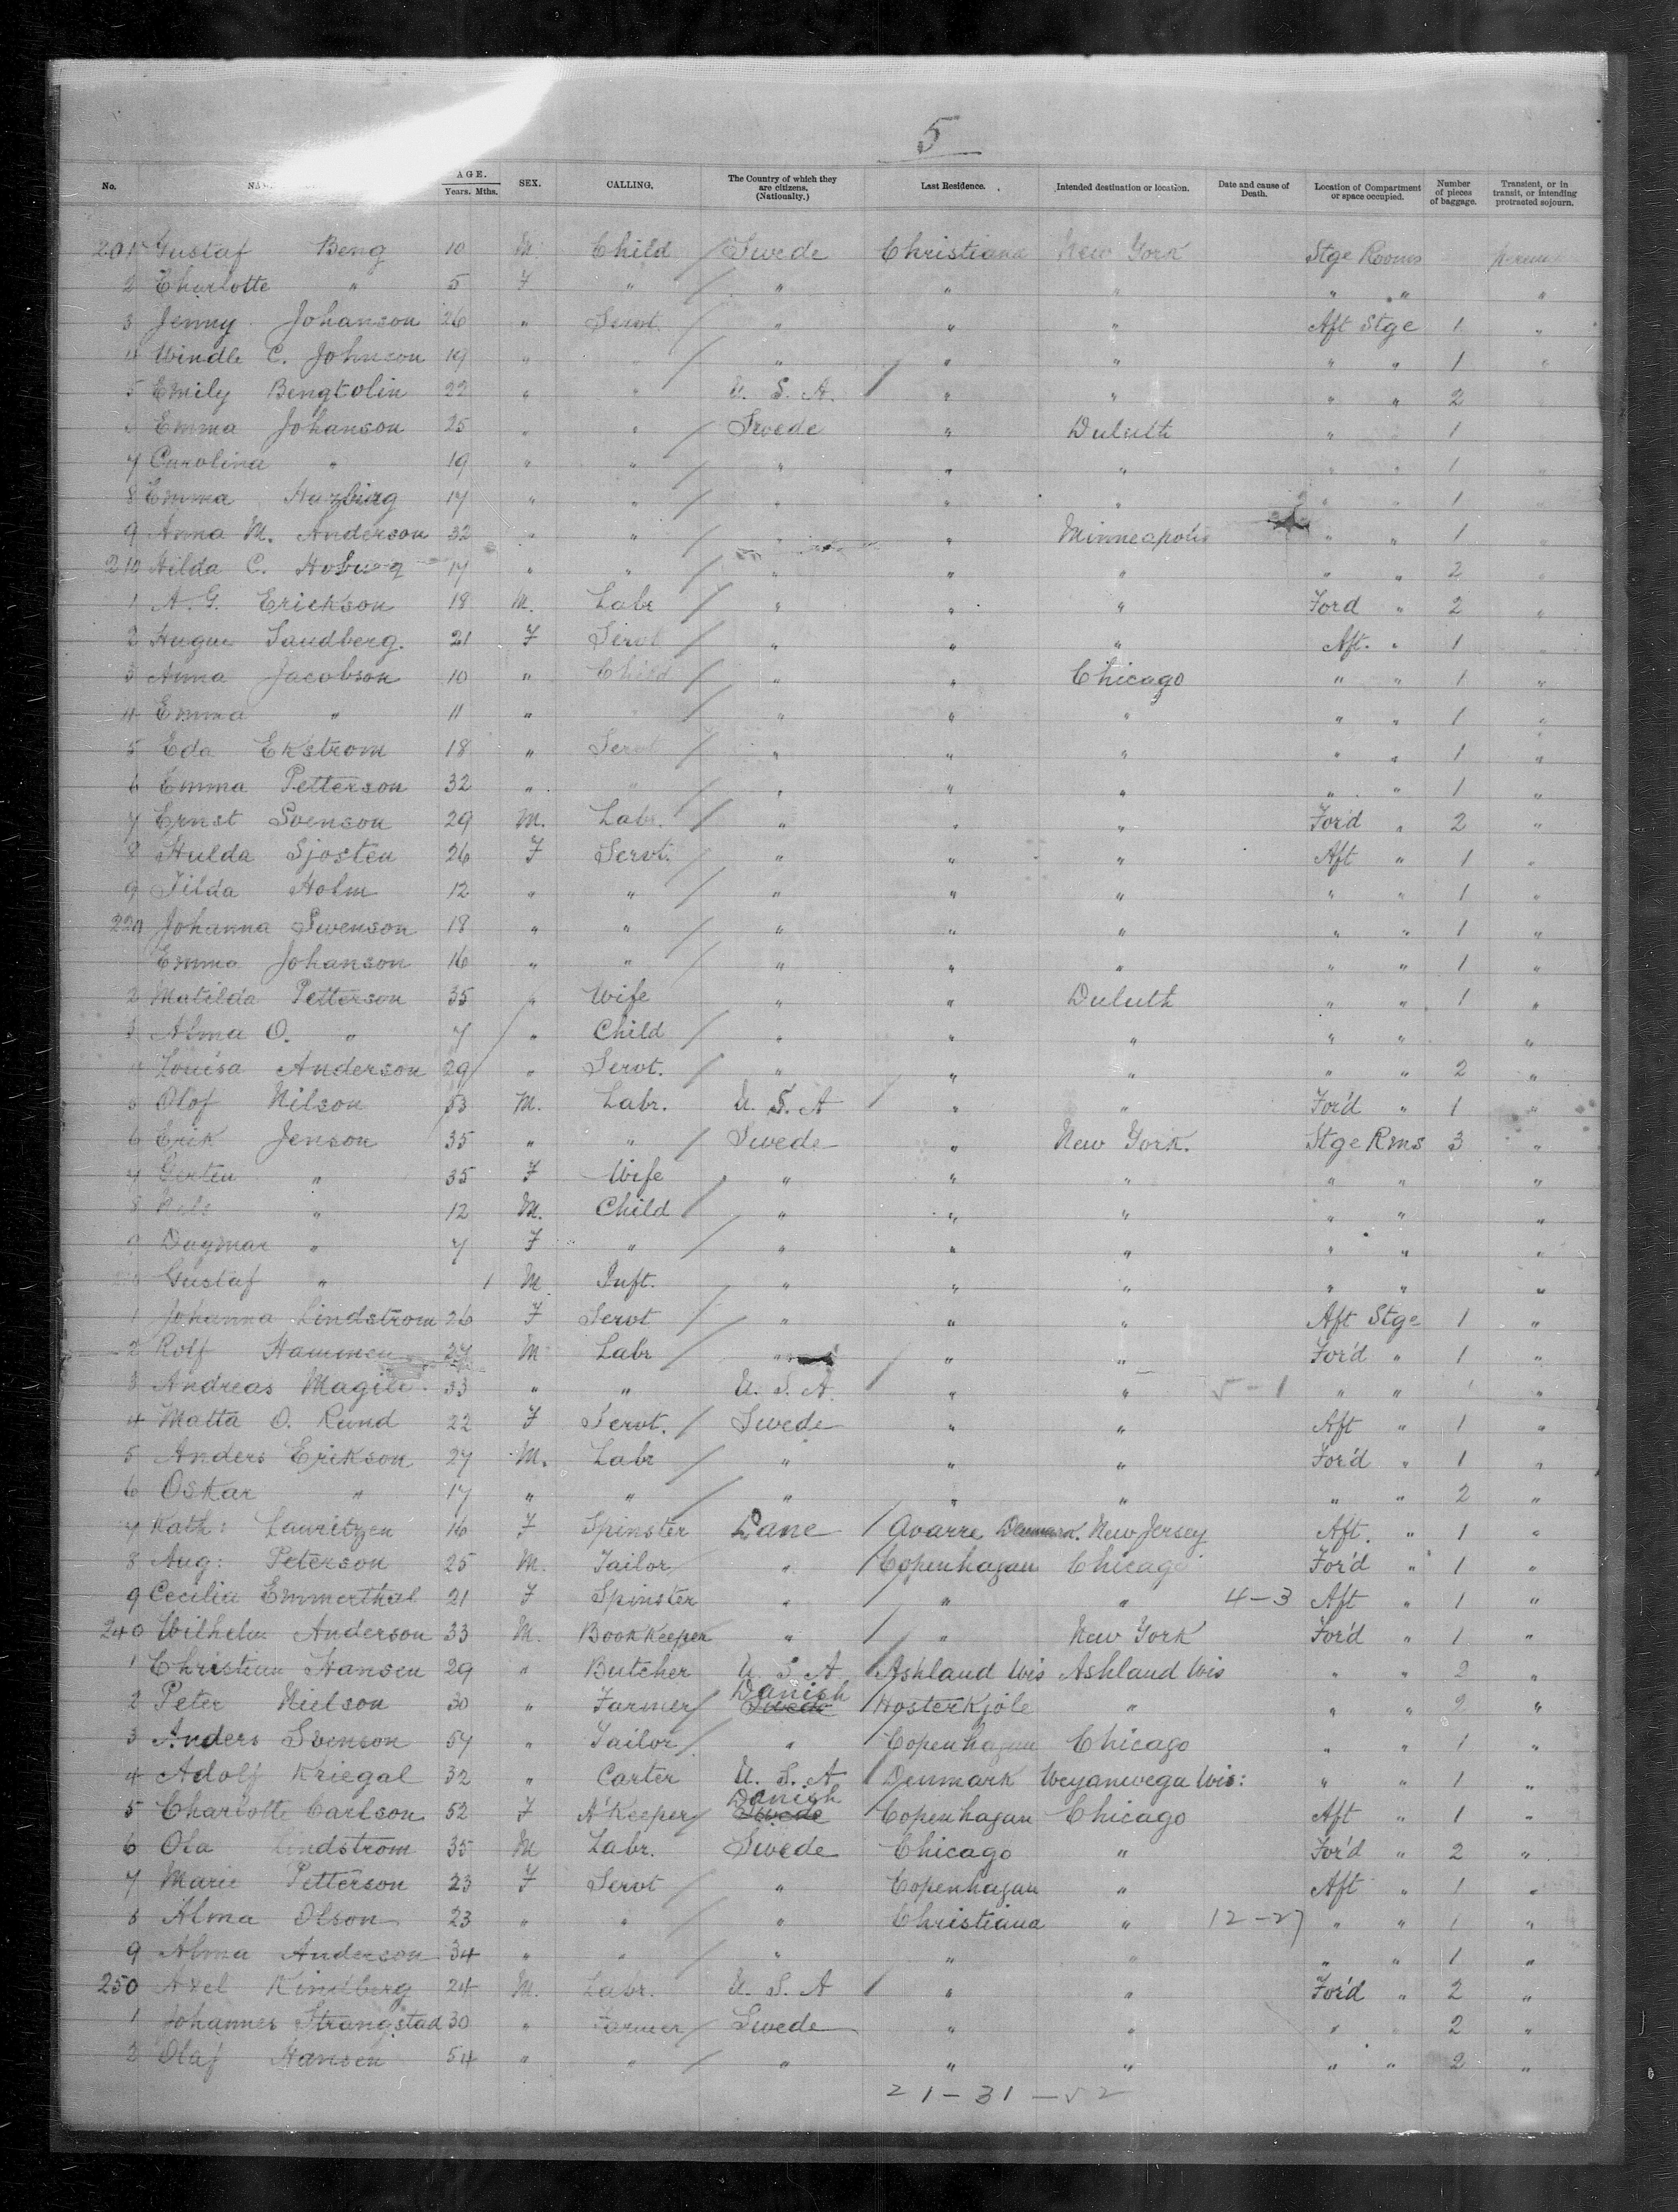 5
No. AGE. Years. Mths. SEX. CALLING. The Country of which they are citizens. (Nationalty.) Last Residence. Intended destination or location. Date and cause of Death. Location of Compartment or space occupied. Number of pieces of baggage. Transient, or in transit, or intending protracted sojourn.
201 Gustaf Beng 10 M. Child / Swede Christiana New York Stge Rooms
2 Charlotte " 5 F " / " " " " " "
3 Jenny Johanson 26 " Servt. / " " " Aft Stge 1 "
4 Windle C. Johnson 19 " " / " / " " " " 1 "
5 Emily Bengtolin 22 " " U. S. A. / " " " " 2
6 Emma Johanson 25 " " / Swede " Duluth " " 1
7 Carolina " 19 " " / " " " " " 1 "
8 Emma 17 " " / " " " " " 1 "
9 Anna M. Anderson 32 " " / " " Minneapolis " " 1 "
210 Hilda C. 17 " " / " " " " " 2 "
1 A. G. Erickson 18 M. Labr / " " " Ford " 2 "
2 Sandberg. 21 F Servt / " " " Aft. " 1 "
3 Anna Jacobson 10 " Child / " " Chicago " " 1 "
4 Emma " 11 " / " " " " " 1 "
5 Eda Ekstrom 18 " Servt / " " " " " 1 "
6 Emma Petterson 32 " " / " " " " " 1 "
7 Ernst Svenson 29 M. Labr. / " " " For'd " 2 "
8 Hulda Sjosten 26 F Servt. / " " " Aft " 1 "
9 Tilda Holm 12 " " / " " " " " 1 "
220 Johanna Swenson 18 " " / " " " " " 1 "
Emma Johanson 16 " " / " " " " " 1 "
2 Matilda Petterson 35 " Wife " " Duluth " " 1 "
3 Alma O. " 7 / " Child / " " " " " "
4 Louisa Anderson 29 / " Servt. / " " " " " 2 "
5 Olof Nilson 53 M. Labr. U. S. A / " " For'd " 1 "
6 Erik Jenson 35 " " / Swede " New York. Stge Rms 3 "
7 Gerten " 35 F Wife / " " " " " "
8 " 12 M. Child / " " " " " "
9 Dagmar " 7 F " / " " " " " "
Gustaf " 1 M. Inft. / " " " " " "
1 Johanna Lindstrom 26 F Servt / " " " Aft Stge 1 "
2 Rolf 27 M Labr / " / " " For'd " 1 "
3 Andreas 33 " " U. S. A. / " " 5-1 " " 1 "
4 Matta O. Rund 22 F Servt. / Swede " " Aft " 1 "
5 Anders Erikson 27 M. Labr / " " " For'd " 1 "
6 Oskar " 17 " " / " " " " " 2 "
7 Kath: Lauritzen 16 F Spinster Dane / Avarre Denmark. New Jersey Aft. " 1 "
8 Aug: Peterson 25 M. Tailor " / Copenhagan Chicago For'd " 1 "
9 Cecilia Emmerthal 21 F Spinster " / " " 4-3 Aft " 1 "
240 Wilhelm Anderson 33 M. Bookkeeper " / " New York For'd " 1 "
1 Christian Hansen 29 " Butcher U. S. A / Ashland Wis Ashland Wis " " 2 "
2 Peter Nielson 30 " Farmer / Danish Swede / Hosterkjole " " " 2 "
3 Anders Svenson 57 " Tailor / " Copenhagan Chicago " " 1 "
4 Adolf Kriegal 32 " Carter U. S. A / Denmark Weyanwega Wis: " " 1 "
5 Charlotte Carlson 52 F H'Keeper / Danish Swede Copenhagan Chicago Aft " 1 "
6 Ola Lindstrom 35 M Labr. Swede Chicago " For'd " 2 "
7 Marie Petterson 23 F Servt / " Copenhagan " Aft " 1 "
8 Alma Olson 23 " " / " Christiana " 12-27 " " 1 "
9 Alma Anderson 34 " " / " " " " " 1 "
250 Axel Kindberg 24 M. Labr. U. S. A / " " For'd " 2 "
1 Johannes Strangstad 30 " Farmer / Swede " " " " 2 "
2 Olaf Hansen 54 " " / " " " " " 2 "
21-31-52